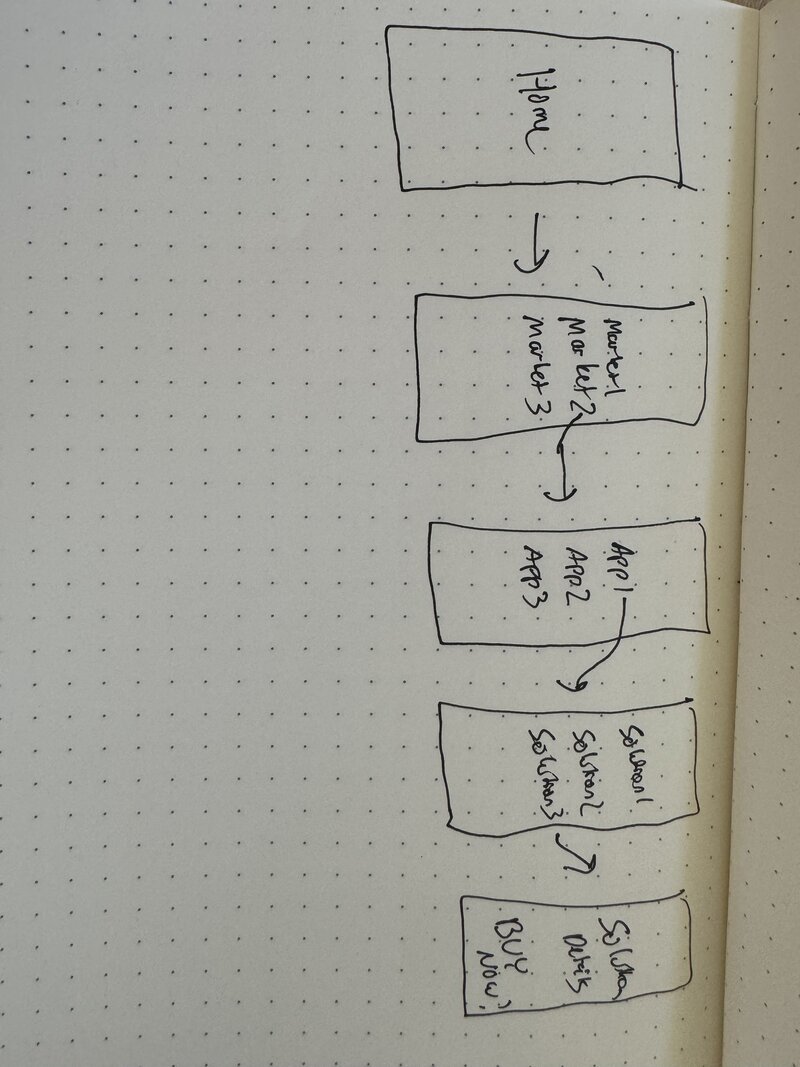 Home
Market1
Market 2
Market 3
App1
App2
App3
Solution1
Solution2
Solution3
Solution
Details
BUY
NOW!